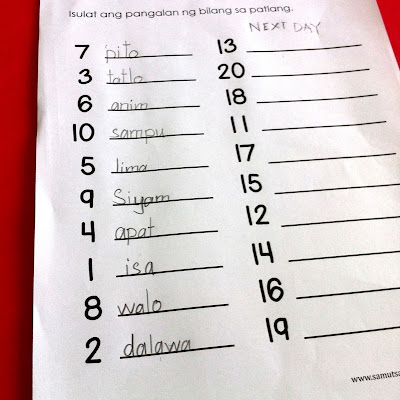 Isulat ang pangalan ng bilang sa patlang.
NEXT DAY
7 pito
3 tatlo
6 anim
10 sampu
5 lima
9 Siyam
4 apat
1 isa
8 walo
2 dalawa
13
20
18
11
17
15
12
14
16
19
www.samutsa